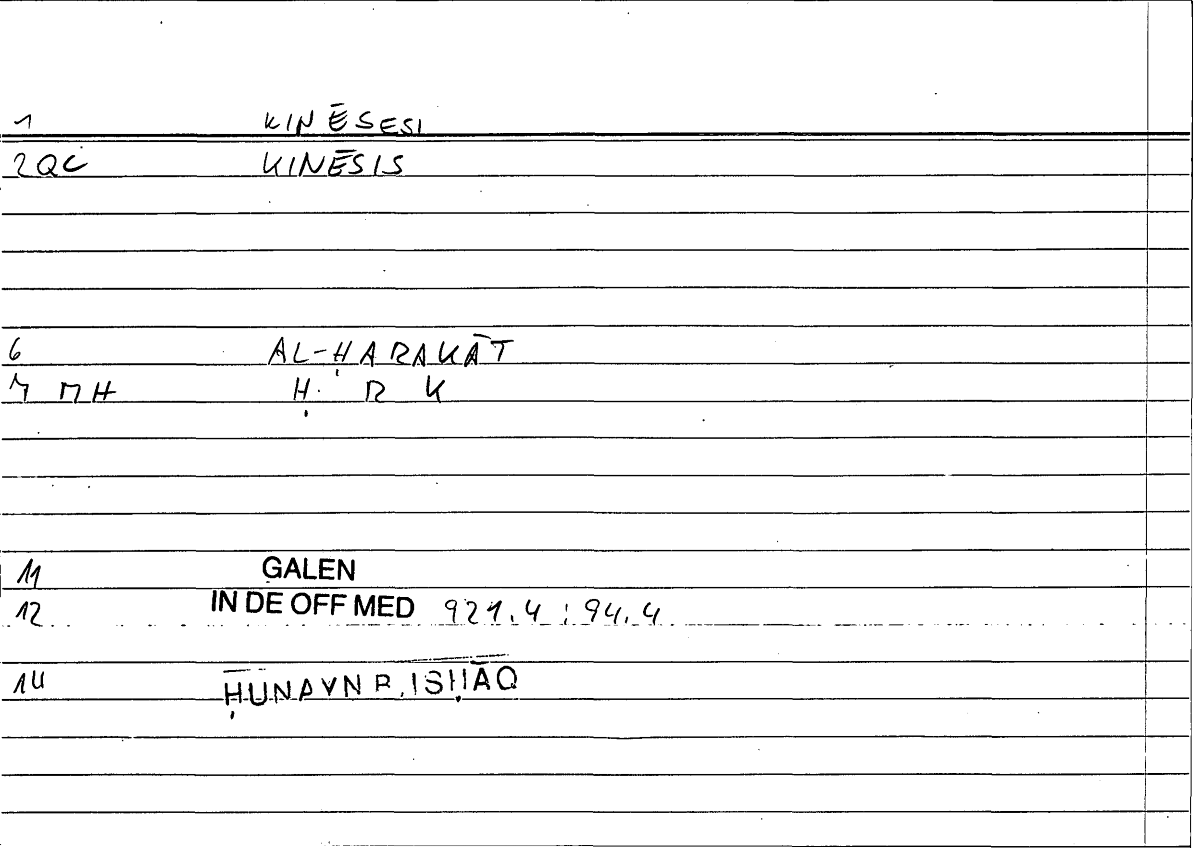 1 KINĒSESI
2QC KINĒSIS
6 AL-ḤARAKĀT
7 MH Ḥ R K
11 GALEN
12 IN DE OFF MED 921.4 ; 94.4
14 ḤUNAYN B. ISḤĀQ